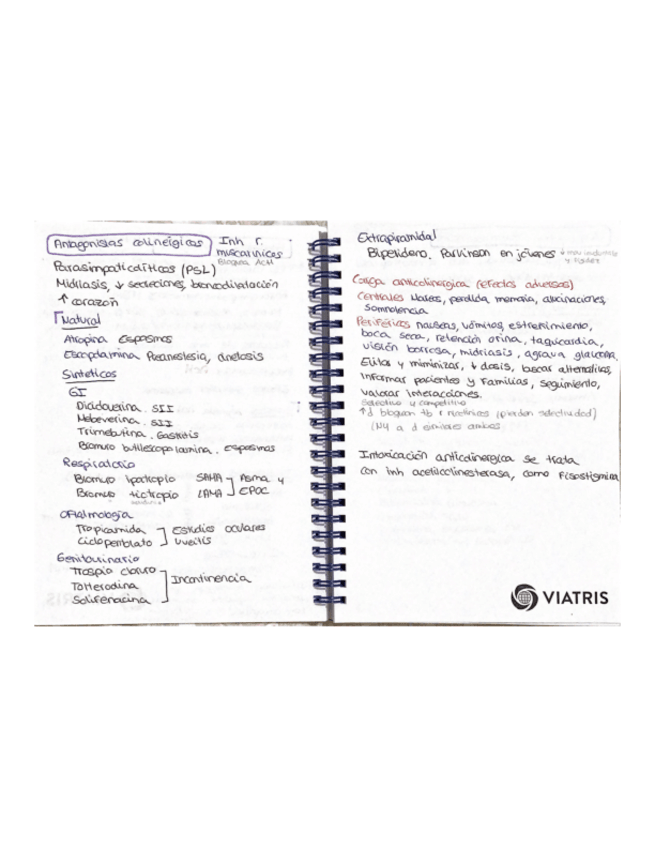 Antagonistas colinérgicos
Inh r.
muscarínicos
Bloquea ACh
Parasimpaticolíticos (PSL)
Midriasis, ↓ secreciones, broncodilatación
↑ corazón
Natural
Atropina Espasmos
Escopolamina Preanestesia, cinetosis
Sintéticos
GI
Diciclverina. SII
Mebeverina. SII
Trimebutina. Gastritis
Bromuro butilescopolamina. espasmos
Respiratorio
Bromuro Ipatropio SAMA
Bromuro tiotropio LAMA
Asma y
EPOC
Oftalmología
Tropicamida
Ciclopentolato
Estudios oculares
Uveítis
Genitourinario
Trospio cloruro
Tolterodina
Solifenacina
Incontinencia
Extrapiramidal
Biperideno. Parkinson en jóvenes
y rigidez
Carga anticolinérgica (efectos adversos)
Centrales Mareos, perdida memoria, alucinaciones,
Somnolencia
Periféricos nauseas, vómitos, estreñimiento,
boca seca, retención orina, taquicardia,
visión borrosa, midriasis, agrava glaucoma
Evitar y minimizar, ↓ dosis, buscar alternativas,
Informar pacientes y Familias, seguimiento,
valorar interacciones.
Selectivo y competitivo
↑ d bloquean tb r nicotínicos (pierden selectividad)
(N4 a d similares ambos
Intoxicación anticolinergica se trata
con inh acetilcolinesterasa, como Fisostigmina
VIATRIS